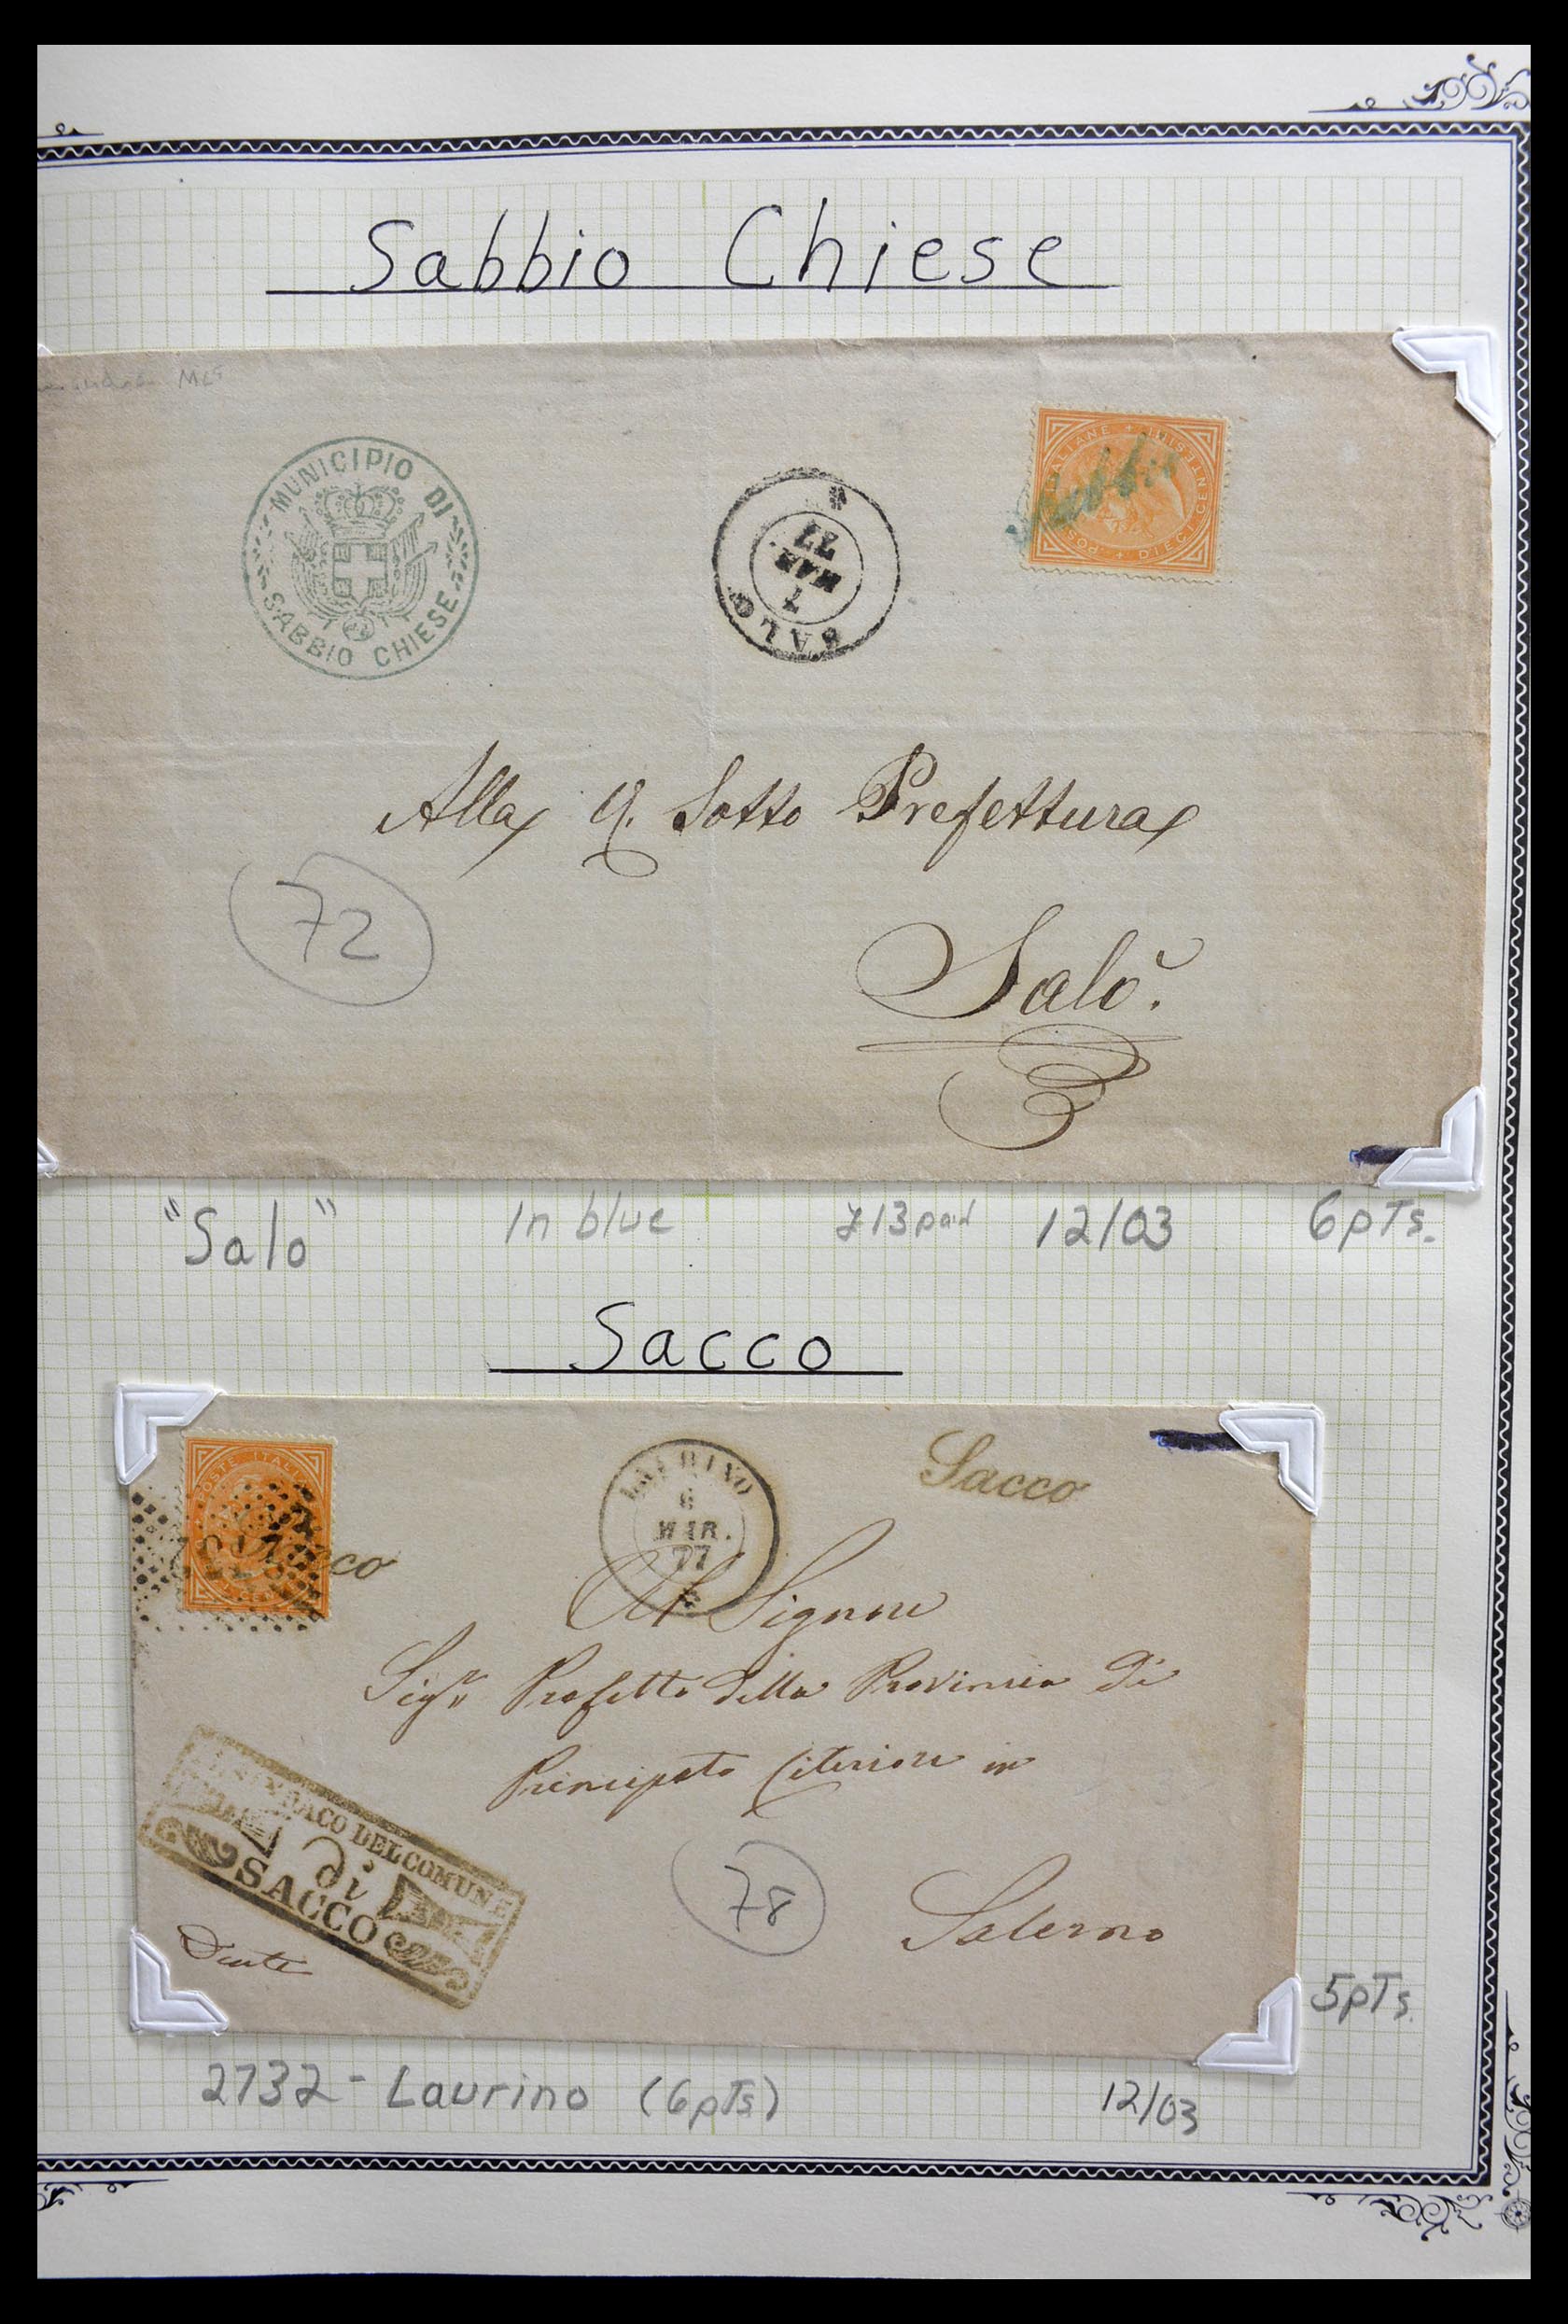 Sabbio Chiese
MUNICIPIO DI
SABBIO CHIESE
SALO
7
MAR.
77
POS ALIANE + DIECI CENTESIMI +
Sabbio
Alla R. Sotto Prefettura
72
Salò.
"Salo" In blue £13 paid 12/03 6pTs.
Sacco
POSTE ITALIA
co
LAURINO
6
MAR.
77
Sacco
Al Signore
Sigr Prefetto della Provincia di
Principato Citeriore in
DACO DEL COMUNE
di
SACCO
78
Salerno
5pTs.
2732 - Laurino (6pTs) 12/03